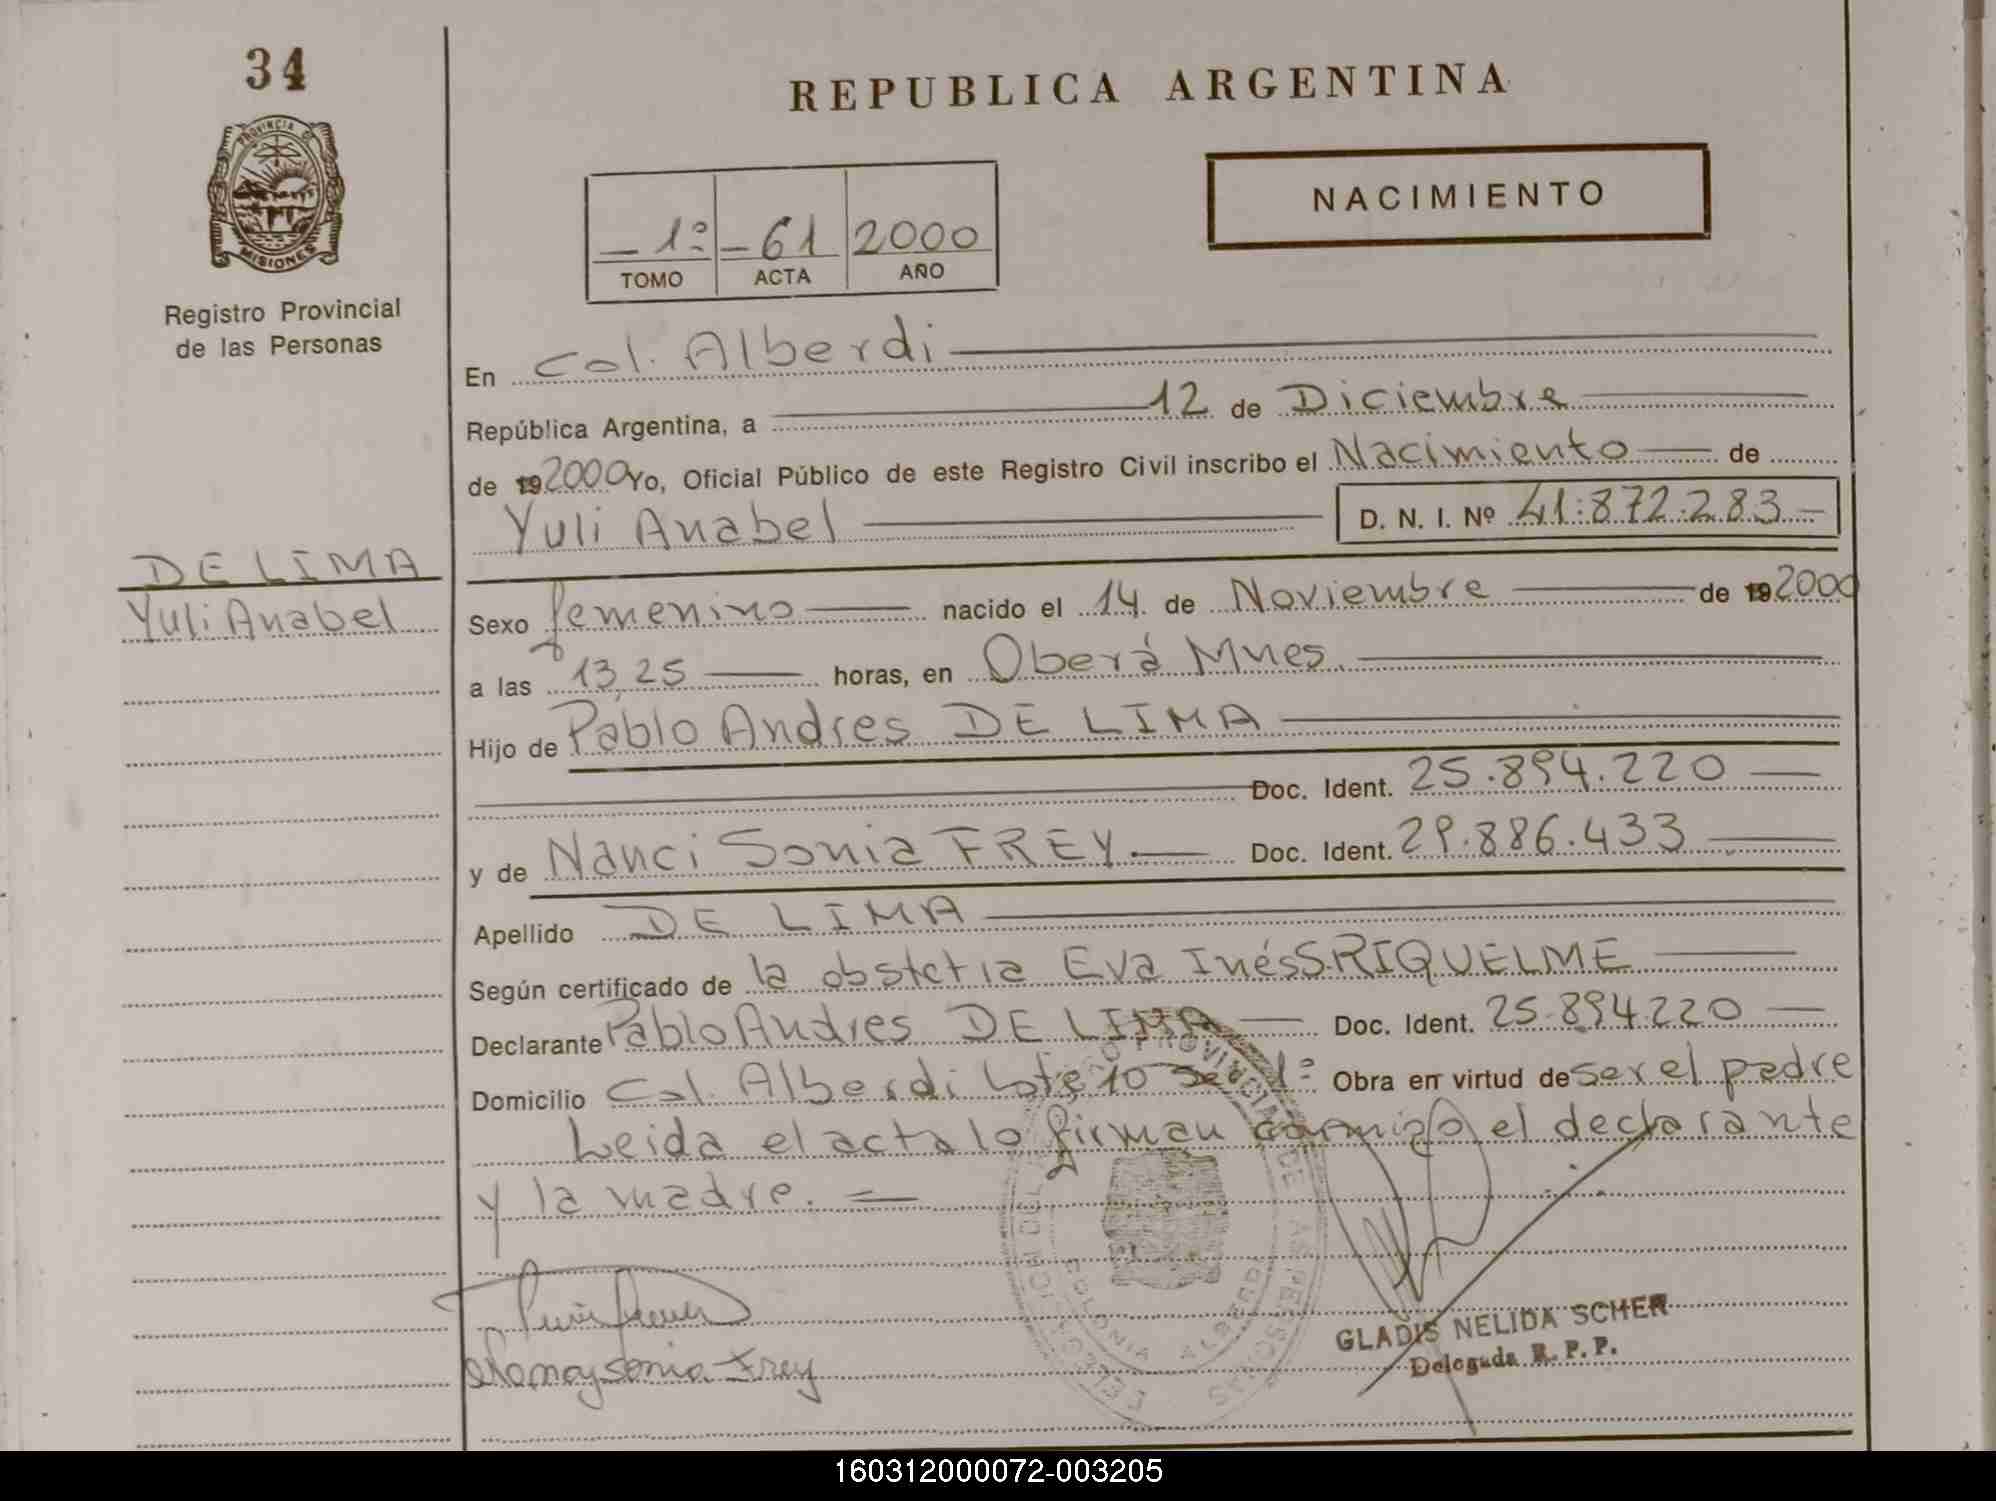 34
REPUBLICA ARGENTINA
PROVINCIA DE
MISIONES
NACIMIENTO
- 1º - 61 2000
TOMO ACTA AÑO
Registro Provincial
de las Personas
En Col. Alberdi
República Argentina, a 12 de Diciembre
de 19 2000 Yo, Oficial Público de este Registro Civil inscribo el Nacimiento de
Yuli Anabel D. N. I. Nº 41.872.283
DE LIMA
Yuli Anabel
Sexo femenino nacido el 14 de Noviembre de 19 2000
a las 13,25 horas, en Oberá Mnes.
Hijo de Pablo Andres DE LIMA
Doc. Ident. 25.894.220
y de Nanci Sonia FREY. Doc. Ident. 29.886.433
Apellido DE LIMA
Según certificado de la obstetria Eva Inés S. RIQUELME
Declarante Pablo Andres DE LIMA Doc. Ident. 25.894.220
Domicilio Col. Alberdi Lote 10 Sec 1º Obra en virtud de ser el padre
Leida el acta lo firman conmigo el declarante
y la madre.
COLONIA ALBERDI
Sonia Frey
GLADIS NELIDA SCHER
Delegada R. P. P.
160312000072-003205